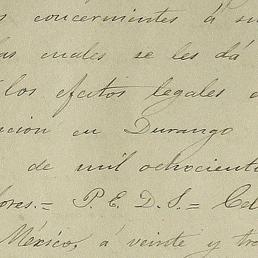 concernientes á su
las cuales se les dá
los efectos legales
cion en Durango
de mil ochociento
ores.= P. E. D. S.= Ce
México, á veinte y tr